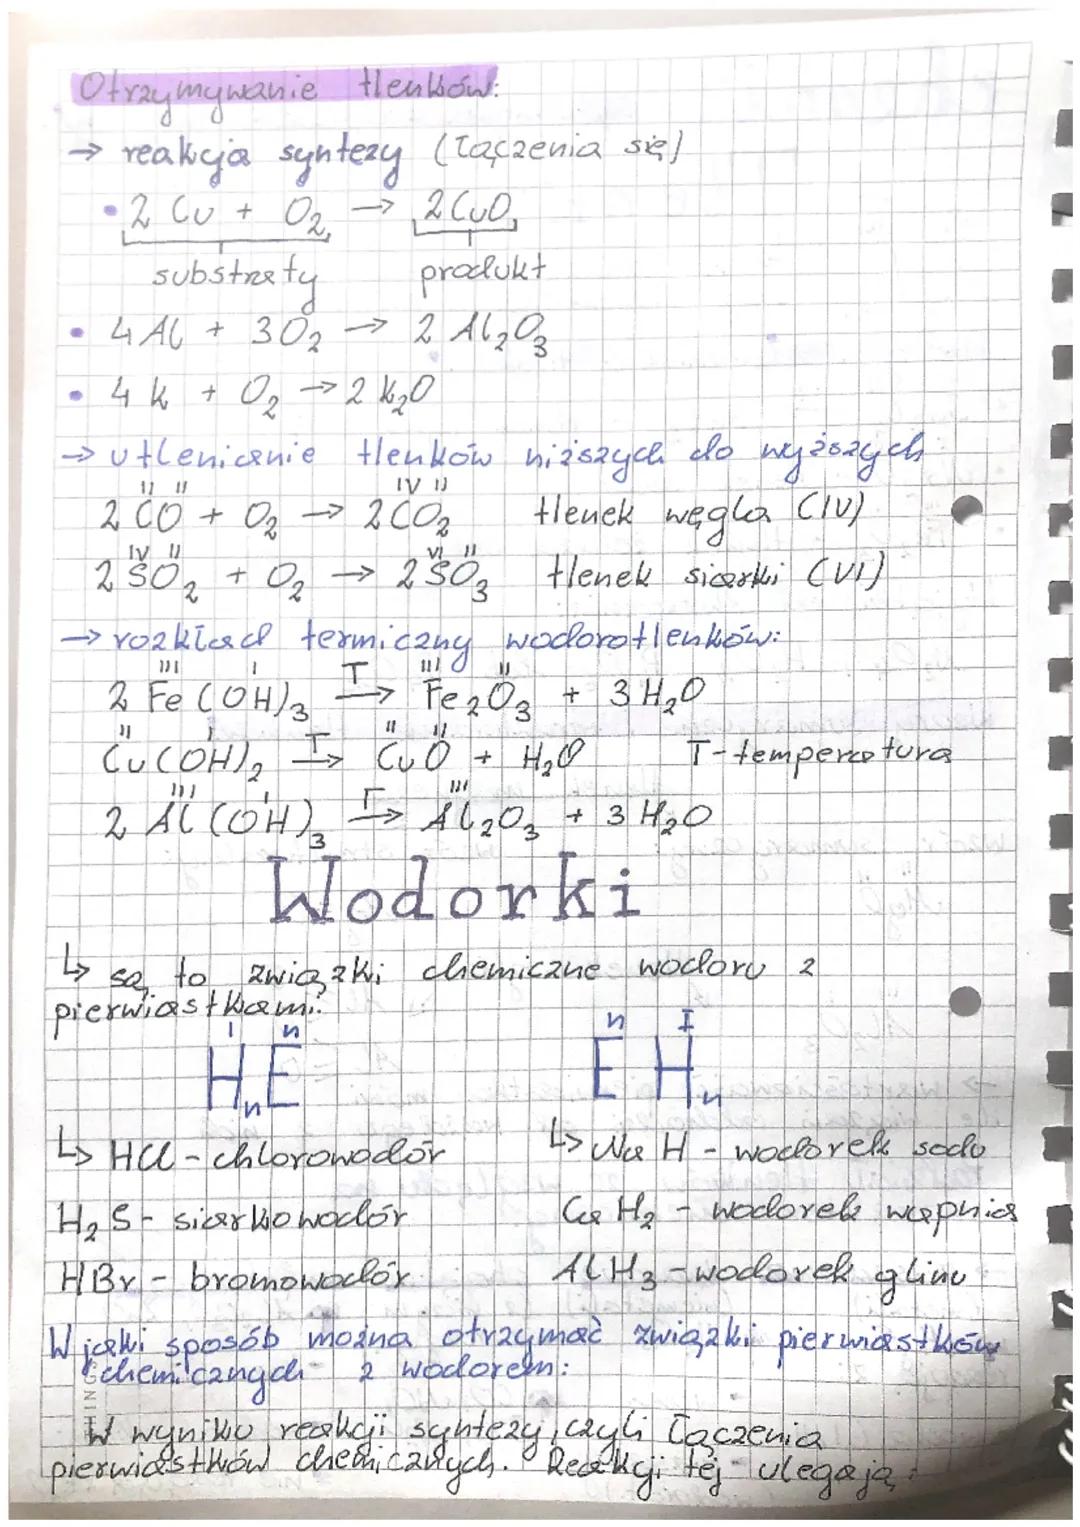 Otrzymywanie tlenków:
→ reakcja syntezy (łączenia się)
• 2 Cu + O₂ → 2 CuO
substraty produkt
• 4 Al + 3 O₂ → 2 Al₂O₃
• 4 K + O₂ → 2 K₂O
→ utlenianie tlenków niższych do wyższych
II II IV II
2 CO + O₂ → 2 CO₂ tlenek węgla (IV)
IV II VI II
2 SO₂ + O₂ → 2 SO₃ tlenek siarki (VI)
→ rozkład termiczny wodorotlenków:
III I T III II
2 Fe(OH)₃ → Fe₂O₃ + 3 H₂O
II I T II II
Cu(OH)₂ → CuO + H₂O T-temperatura
III I T III
2 Al(OH)₃ → Al₂O₃ + 3 H₂O
Wodorki
↳ są to związki chemiczne wodoru z
pierwiastkami:
I n n I
HₙE EHₙ
↳ HCl - chlorowodór ↳ NaH - wodorek sodu
H₂S - siarkowodór CaH₂ - wodorek wapnia
HBr - bromowodór AlH₃ - wodorek glinu
W jaki sposób można otrzymać związki pierwiastków
chemicznych z wodorem:
W wyniku reakcji syntezy, czyli łączenia
pierwiastków chemicznych. Reakcji tej ulegają: